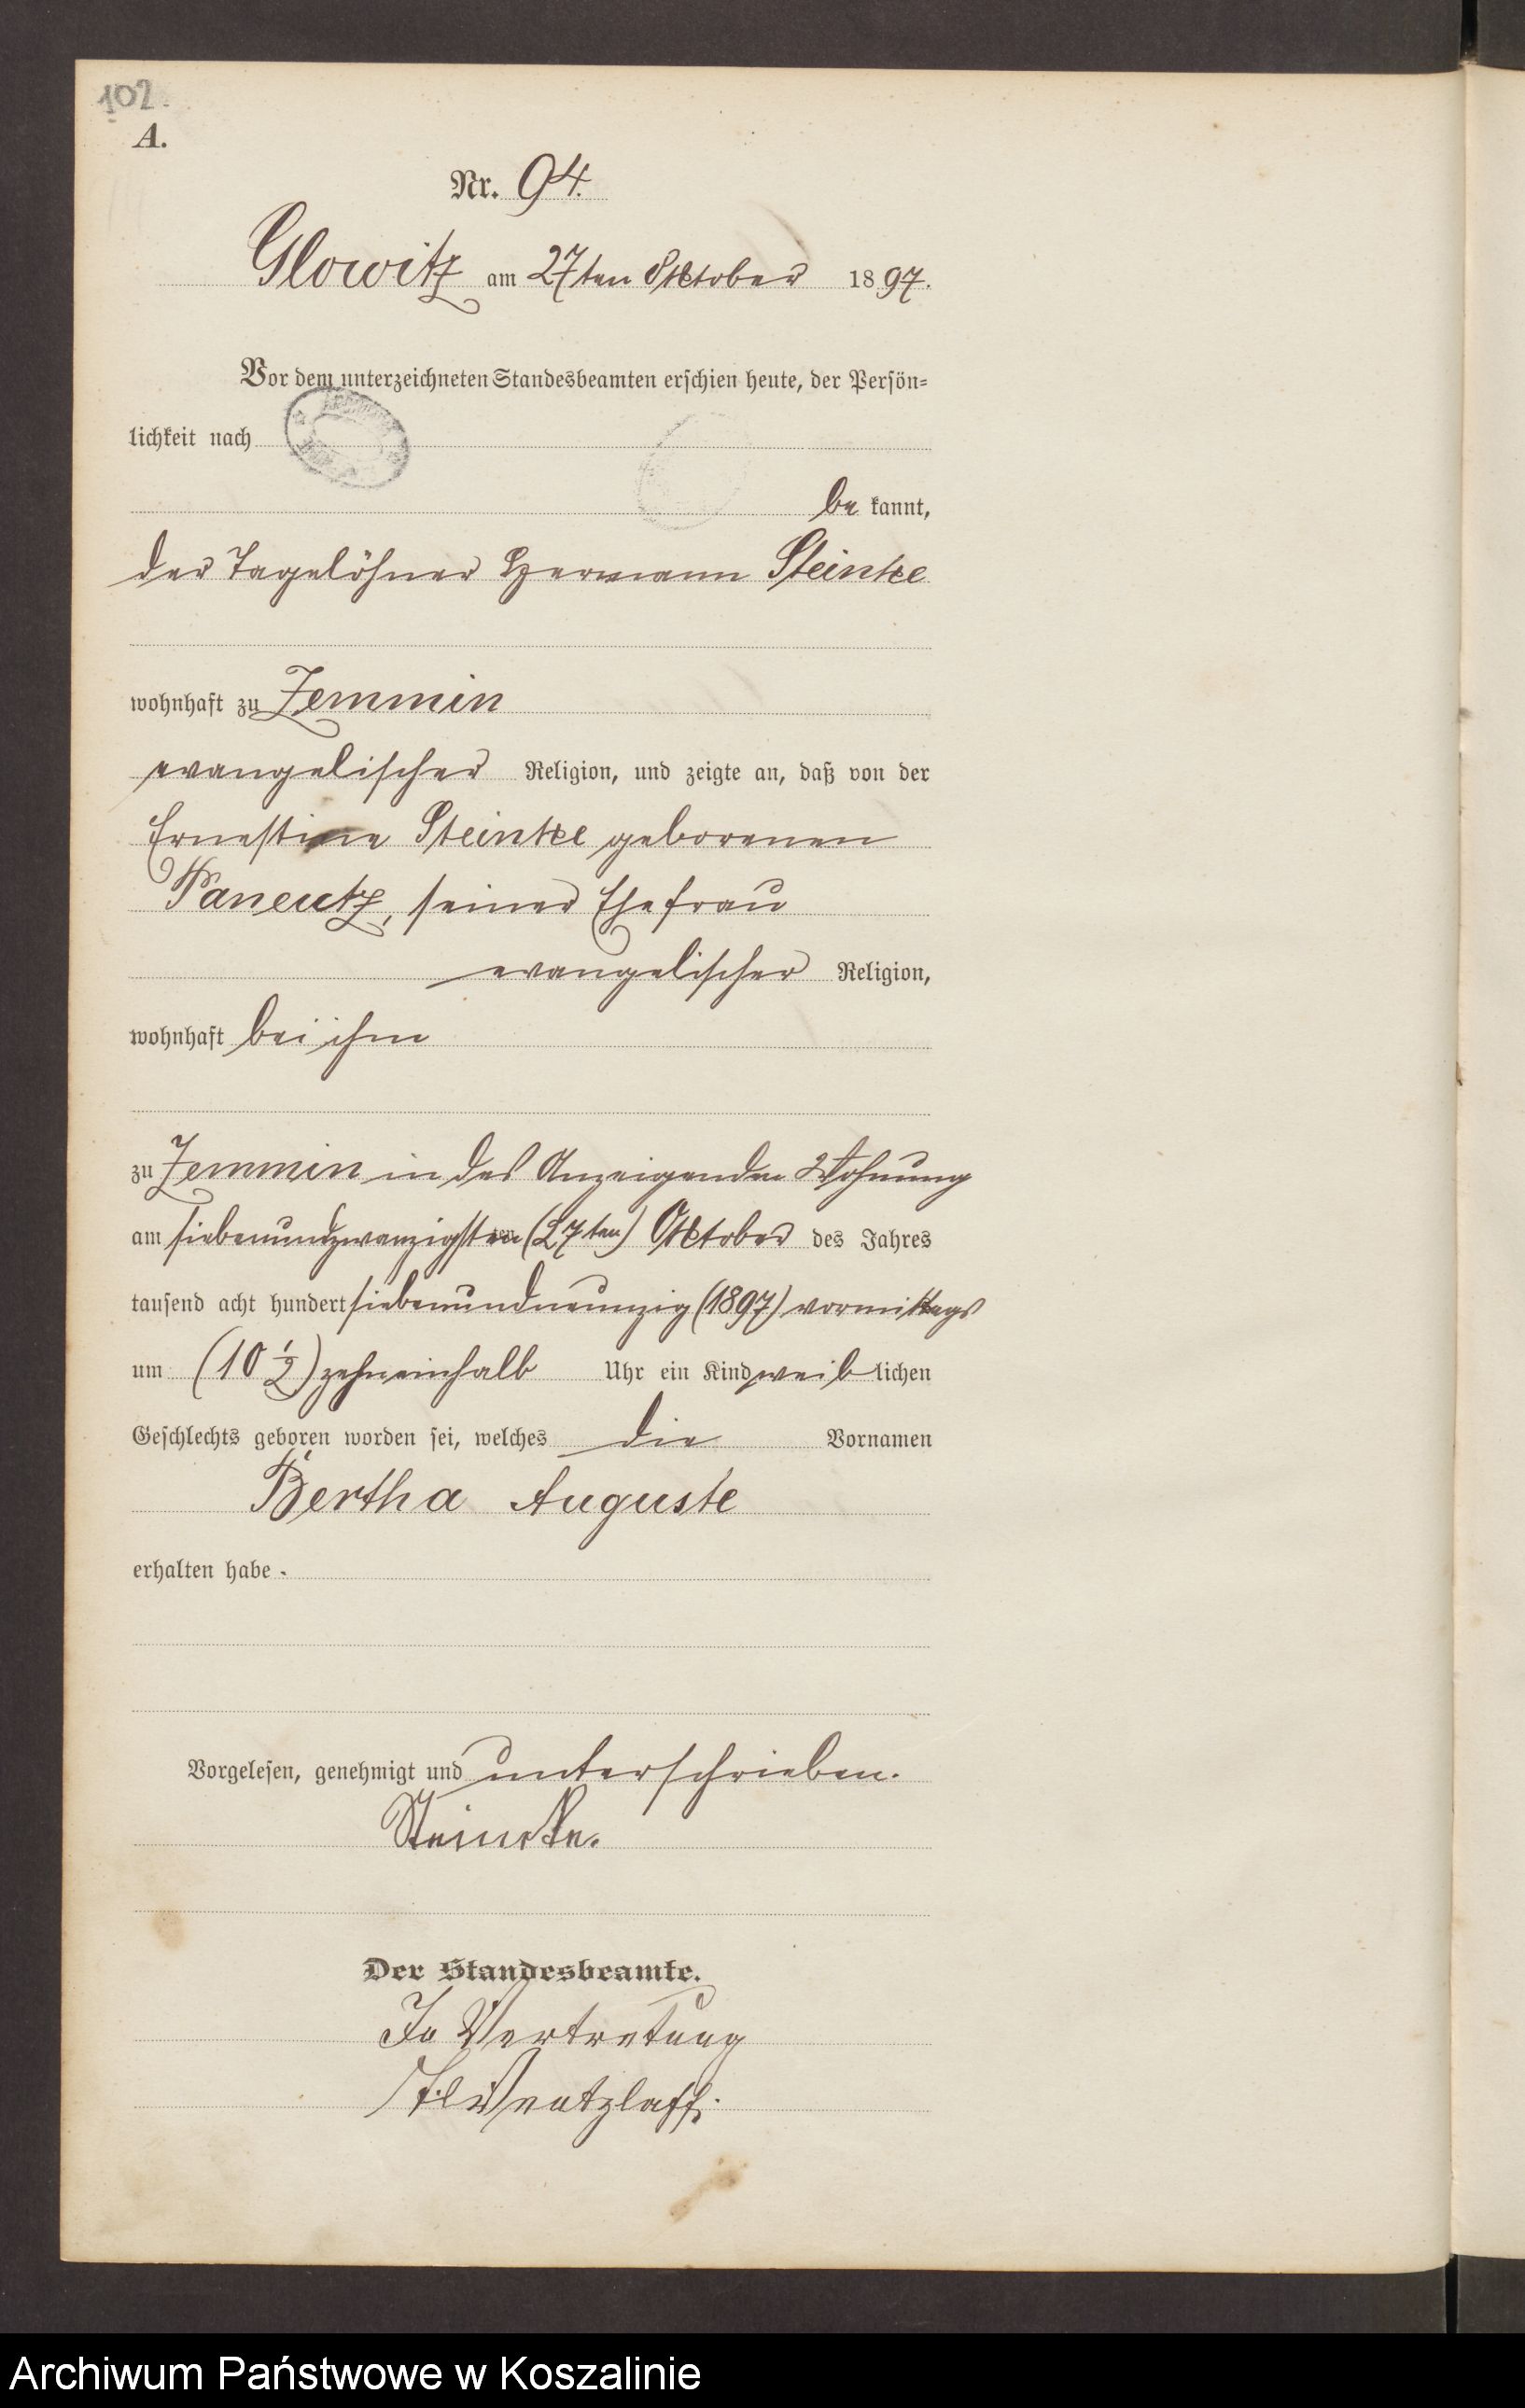 102.
A.
Nr. 94.
Glowitz am 27ten Oktober 1897.
Vor dem unterzeichneten Standesbeamten erschien heute, der Persön-
lichkeit nach
be kannt,
der Tagelöhner Hermann Steinke
wohnhaft zu Zemmin
evangelischer Religion, und zeigte an, daß von der
Ernestine Steinke geborenen
Paneutz, seiner Ehefrau
evangelischer Religion,
wohnhaft bei ihm
zu Zemmin in des Anzeigenden Wohnung
am siebenundzwanzigsten (27ten) Oktober des Jahres
tausend acht hundert siebenundneunzig (1897) vormittags
um (10 1/2) zehneinhalb Uhr ein Kind weiblichen
Geschlechts geboren worden sei, welches die Vornamen
Bertha Auguste
erhalten habe.
Vorgelesen, genehmigt und unterschrieben.
Steincke.
Der Standesbeamte.
In Vertretung
Wentzlaff.
Archiwum Państwowe w Koszalinie